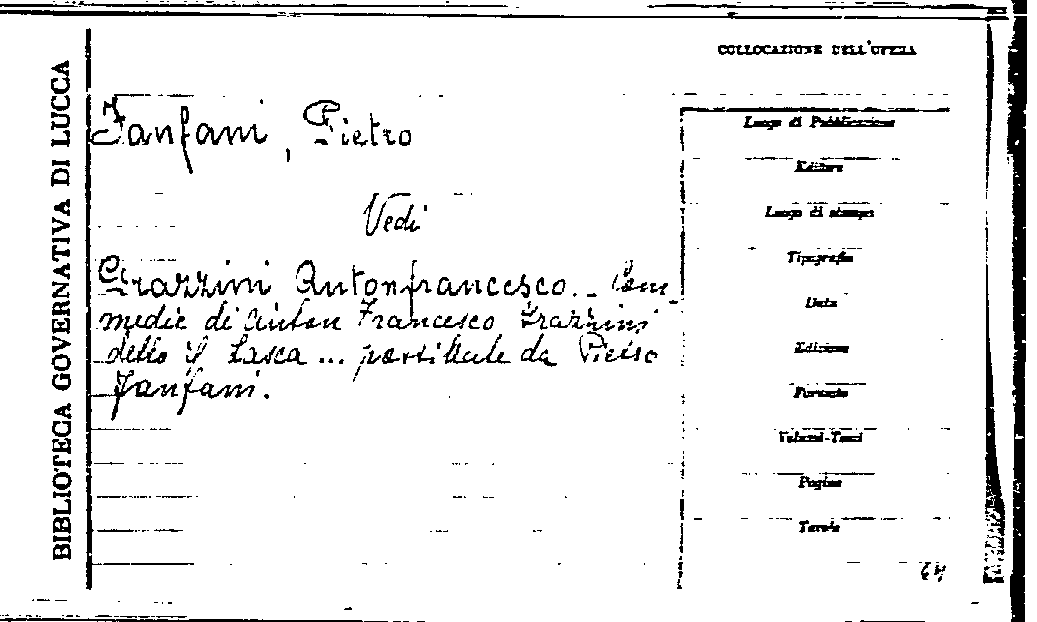 BIBLIOTECA GOVERNATIVA DI LUCCA
COLLOCAZIONE DELL'OPERA
Fanfani, Pietro
Vedi
Grazzini Antonfrancesco. - Com-
medie di Anton Francesco Grazzini
detto il Lasca ... postillate da Pietro
Fanfani.
Luogo di Pubblicazione
Editore
Luogo di stampa
Tipografia
Data
Edizione
Formato
Volumi-Tomi
Pagine
Tavole